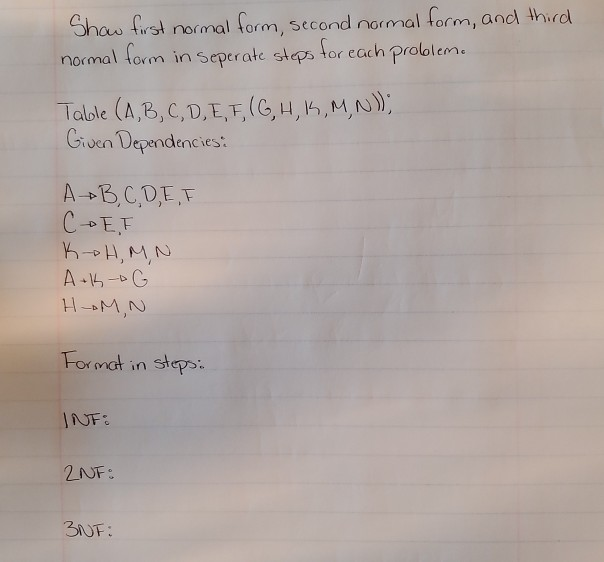 Show first normal form, second normal form, and third
normal form in seperate steps for each problem.
Table (A,B,C,D,E,F,(G,H,K,M,N));
Given Dependencies:
A→B,C,D,E,F
C→E,F
K→H,M,N
A+K→G
H→M,N
Format in steps:
1NF:
2NF:
3NF: